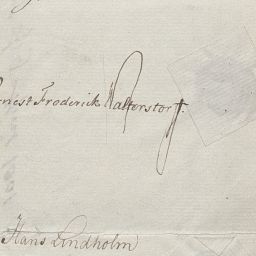 rnest Froderick Walterstorff.
Hans Lindholm